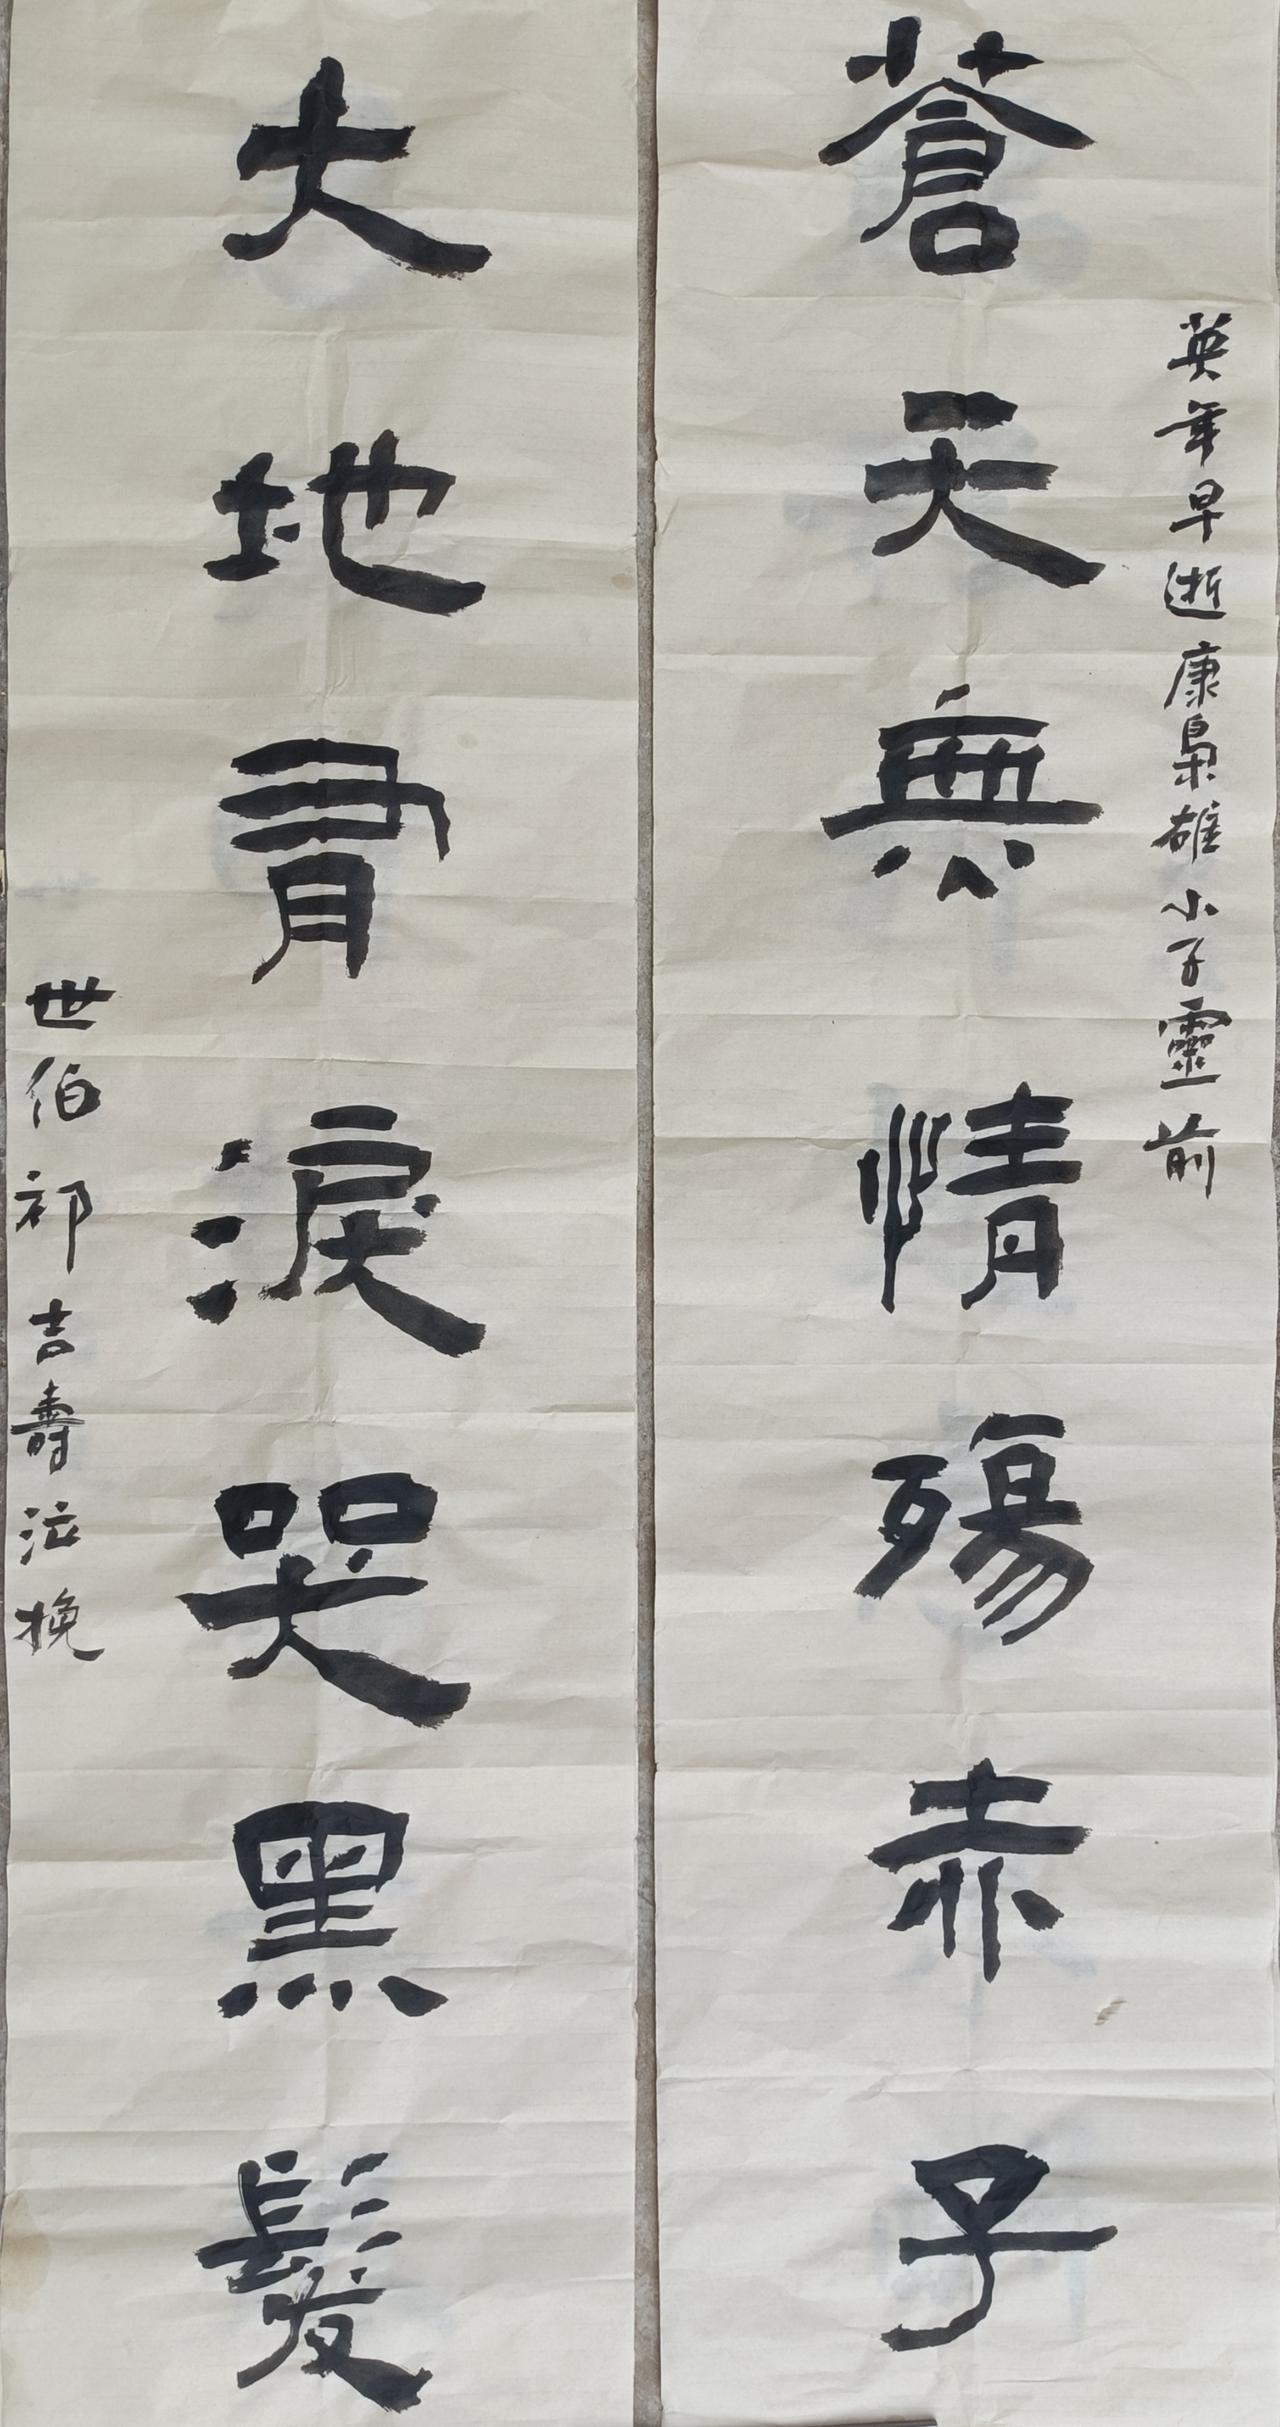 英年早逝康梟雄小子靈前
蒼天無情殤赤子
大地有淚哭黑髮
世伯祁吉壽泣挽